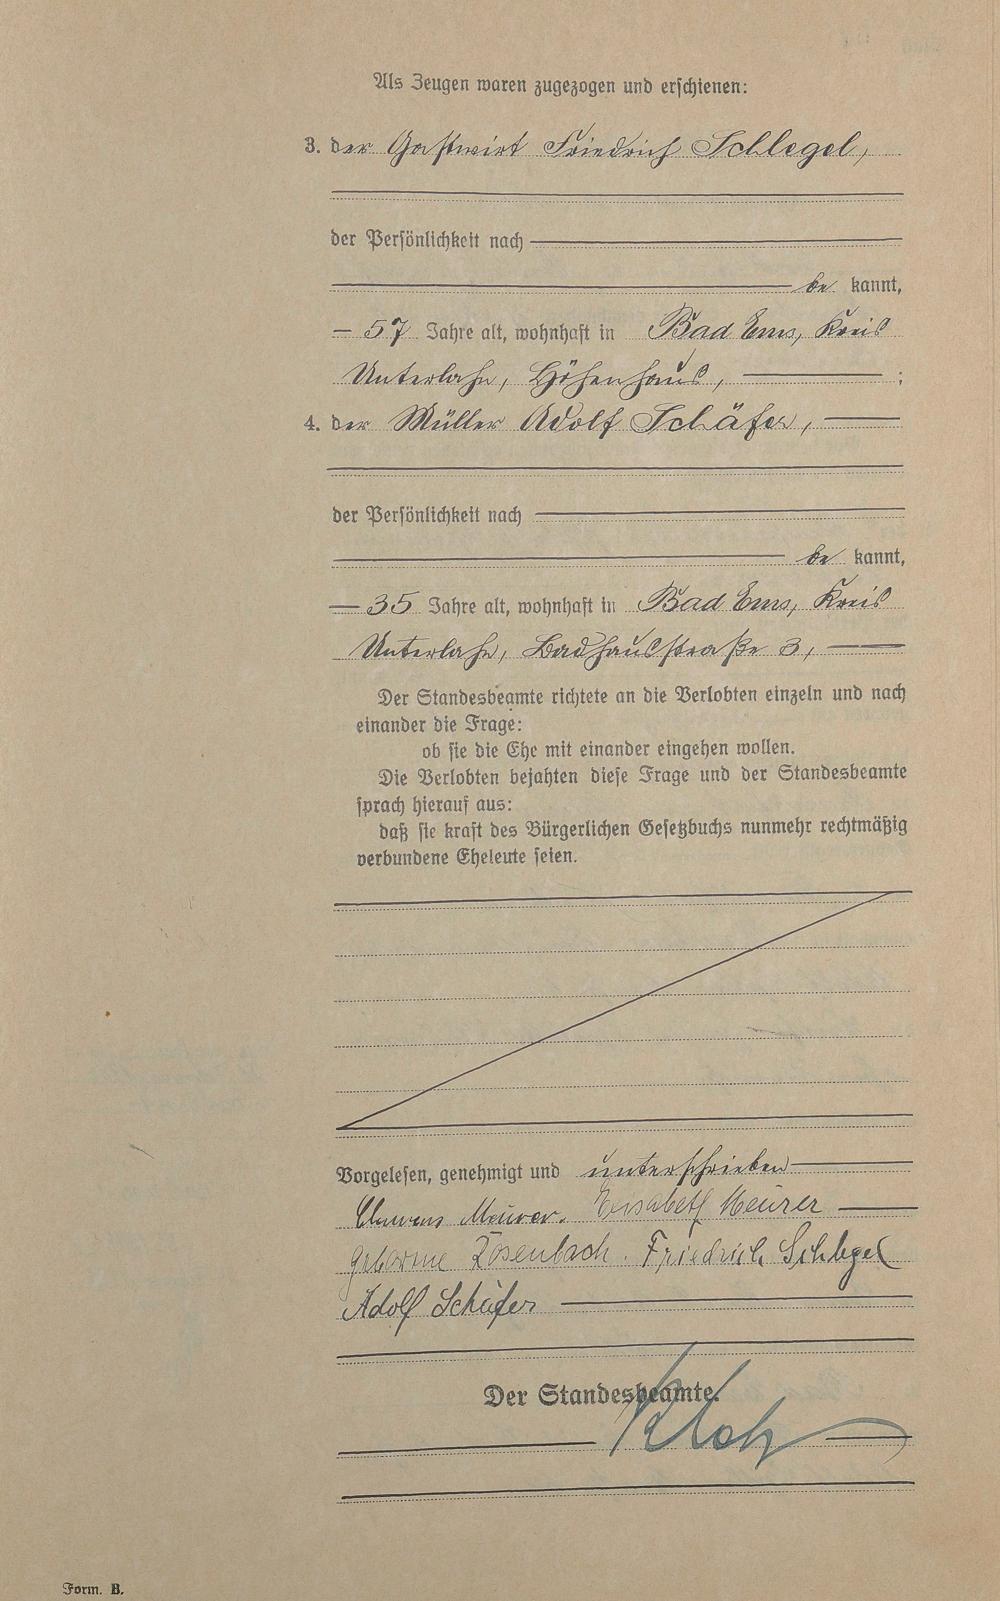 Als Zeugen waren zugezogen und erschienen:
3. der Gastwirt Friedrich Schlegel,
der Persönlichkeit nach
be kannt,
57 Jahre alt, wohnhaft in Bad Ems, Kreis
Unterlahn, Höhenhaus, ;
4. der Müller Adolf Schäfer,
der Persönlichkeit nach
be kannt,
35 Jahre alt, wohnhaft in Bad Ems, Kreis
Unterlahn, Badhausstraße 3,
Der Standesbeamte richtete an die Verlobten einzeln und nach
einander die Frage:
ob sie die Ehe mit einander eingehen wollen.
Die Verlobten bejahten diese Frage und der Standesbeamte
sprach hierauf aus:
daß sie kraft des Bürgerlichen Gesetzbuchs nunmehr rechtmäßig
verbundene Eheleute seien.
Vorgelesen, genehmigt und unterschrieben
Clemens Meurer. Elisabeth Meurer
geborene Rosenbach. Friedrich Schlegel
Adolf Schäfer
Der Standesbeamte.
Form. B.